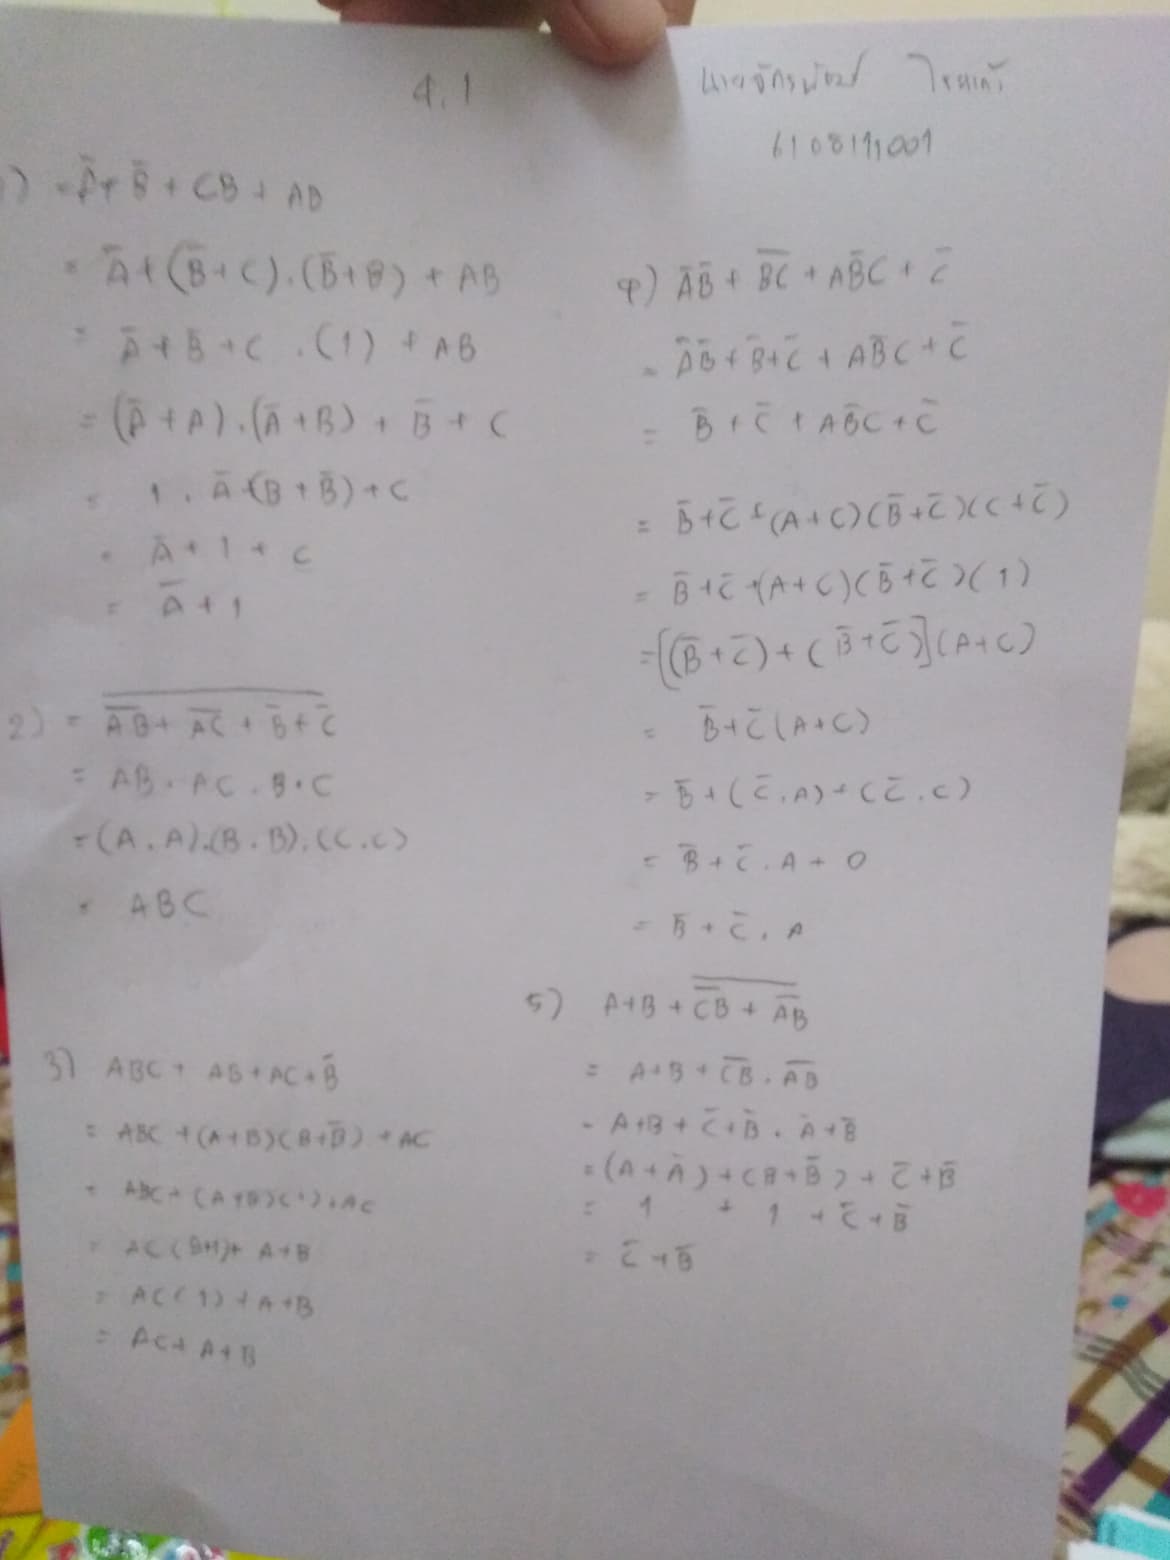 4.1
6108111009
1) = A̅ + B̅ + CB + AB
= A̅ + (B̅ + C) . (B̅ + B) + AB
= A̅ + B̅ + C . (1) + AB
= (A̅ + A) . (A̅ + B) + B̅ + C
= 1 . A̅ + (B + B̅) + C
= A̅ + 1 + C
= A̅ + 1
2) = \overline{\overline{AB} + \overline{AC} + B̅ + C̅}
= AB . AC . B . C
= (A . A) . (B . B) . (C . C)
= ABC
3) ABC + AB + AC + B̅
= ABC + (A + B)(B + B̅) + AC
= ABC + (A + B)(1) + AC
= AC(B+1) + A + B
= AC(1) + A + B
= AC + A + B
4) A̅B̅ + \overline{BC} + AB̅C + C̅
= A̅B̅ + B̅ + C̅ + AB̅C + C̅
= B̅ + C̅ + AB̅C + C̅
= B̅ + C̅ + (A + C)(B̅ + C̅)(C + C̅)
= B̅ + C̅ + (A + C)(B̅ + C̅)(1)
= [(B̅ + C̅) + (B̅ + C̅)](A + C)
= B̅ + C̅(A + C)
= B̅ + (C̅ . A) + (C̅ . C)
= B̅ + C̅ . A + 0
= B̅ + C̅ . A
5) A + B + \overline{\overline{CB} + \overline{AB}}
= A + B + \overline{CB} . \overline{AB}
= A + B + C̅ + B̅ . A̅ + B̅
= (A + A̅) + (B + B̅) + C̅ + B̅
= 1 + 1 + C̅ + B̅
= C̅ + B̅